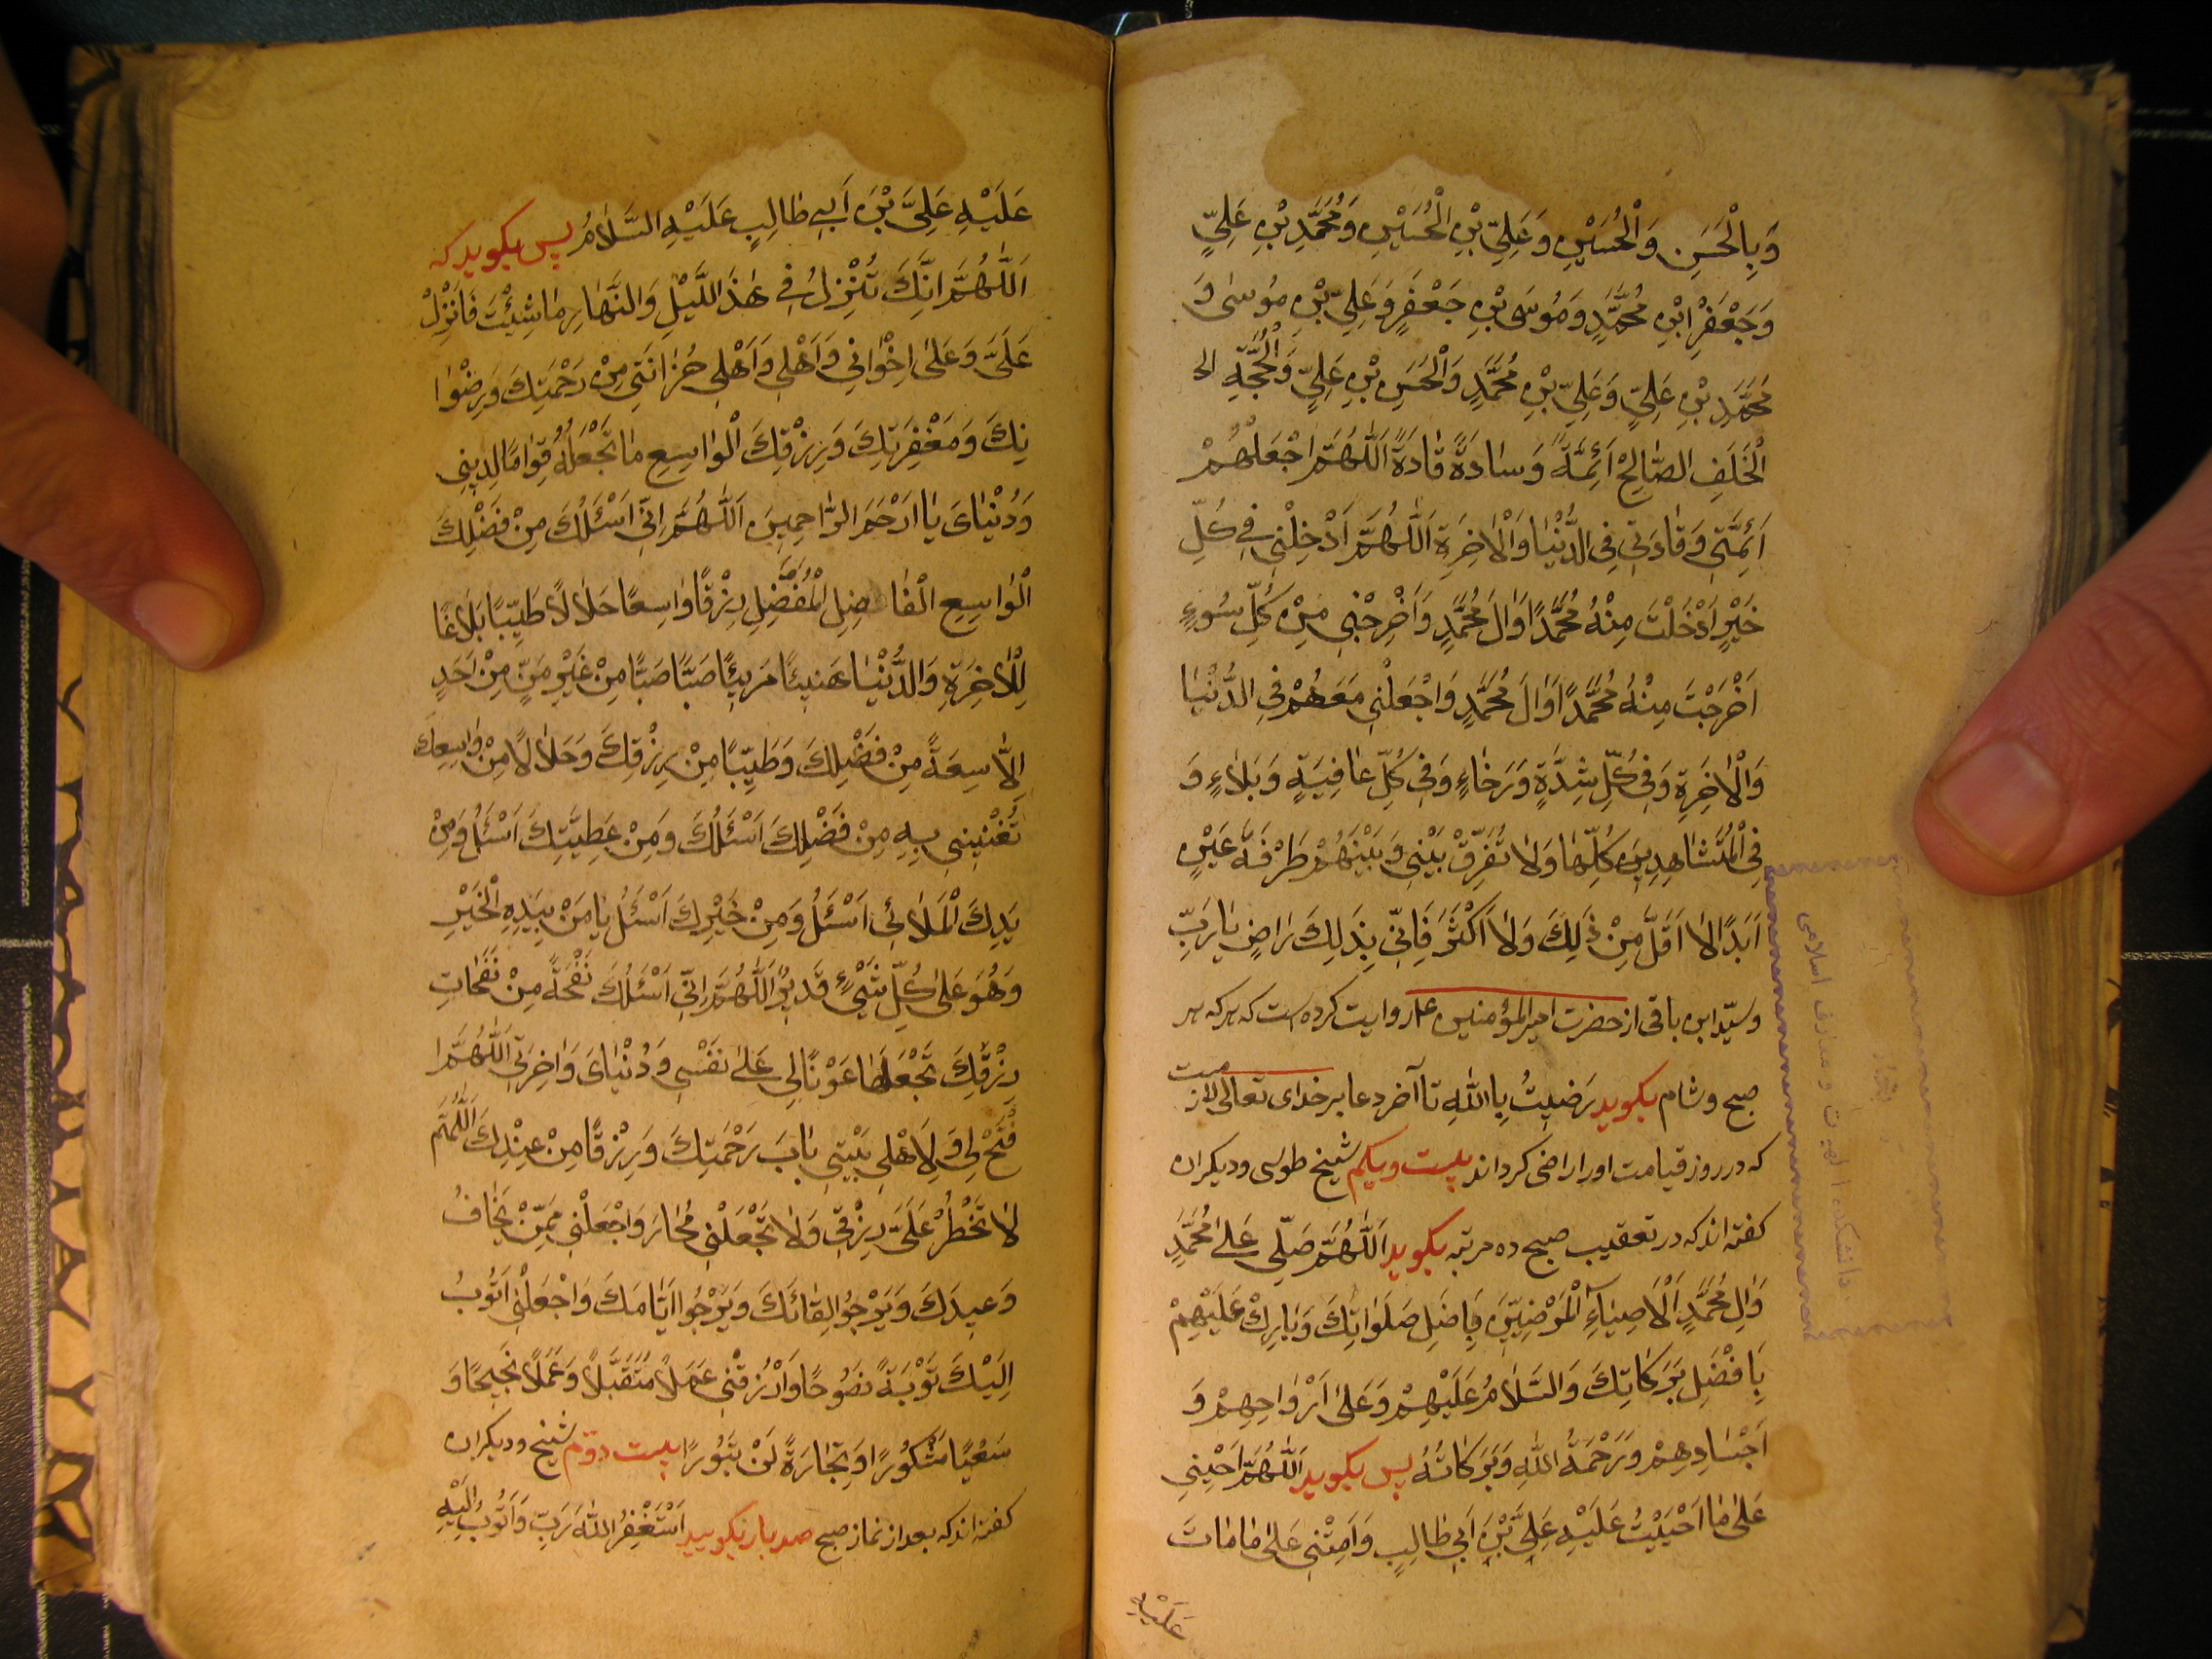 وَبِالْحَسَنِ وَالْحُسَيْنِ وَعَلِيِّ بْنِ الْحُسَيْنِ وَمُحَمَّدِ بْنِ عَلِيٍّ
وَجَعْفَرِ ابْنِ مُحَمَّدٍ وَمُوسَى بْنِ جَعْفَرٍ وَعَلِيِّ بْنِ مُوسٰى وَ
مُحَمَّدِ بْنِ عَلِيٍّ وَعَلِيِّ بْنِ مُحَمَّدٍ وَالْحَسَنِ بْنِ عَلِيٍّ وَالْحُجَّةِ
الْخَلَفِ الصّٰالِحِ اَئِمَّةً وَسٰادَةً قٰادَةً اَللّٰهُمَّ اجْعَلْهُمْ
اَئِمَّتِي وَقٰادَتِي فِي الدُّنْيٰا وَالْاٰخِرَةِ اَللّٰهُمَّ اَدْخِلْنِي فِي كُلِّ
خَيْرٍ اَدْخَلْتَ مِنْهُ مُحَمَّدًا وَاٰلَ مُحَمَّدٍ وَاَخْرِجْنِي مِنْ كُلِّ سُوءٍ
اَخْرَجْتَ مِنْهُ مُحَمَّدًا وَاٰلَ مُحَمَّدٍ وَاجْعَلْنِي مَعَهُمْ فِي الدُّنْيٰا
وَالْاٰخِرَةِ وَفِي كُلِّ شِدَّةٍ وَرَخٰاءٍ وَفِي كُلِّ عٰافِيَةٍ وَبَلٰاءٍ وَ
فِي الْمُشٰاهِدِينَ كُلِّهٰا وَلٰا تُفَرِّقْ بَيْنِي وَبَيْنَهُمْ طَرْفَةَ عَيْنٍ
اَبَدًا لٰا اَقَلَّ مِنْ ذٰلِكَ وَلٰا اَكْثَرَ فَاِنِّي بِذٰلِكَ رٰاضٍ يٰا رَبِّ
وسيّد ابن باقى از حضرت امير المؤمنين روايت كرده است كه هر كه هر
صبح و شام بكويد رَضِيتُ بِاللّٰهِ تا آخر دعا بر خداى تعالى لازمست
كه در روز قيامت او را راضى كرداند بيست ويكم شيخ طوسى وديكران
كفته اند كه در تعقيب صبح ده مرتبه بكويد اَللّٰهُمَّ صَلِّي عَلىٰ مُحَمَّدٍ
وَاٰلِ مُحَمَّدٍ اَلْاَوْصِيٰاءِ الْمَرْضِيِّينَ بِاَفْضَلِ صَلَوٰاتِكَ وَبٰارِكْ عَلَيْهِمْ
بِاَفْضَلِ بَرَكٰاتِكَ وَالسَّلٰامُ عَلَيْهِمْ وَعَلىٰ اَرْوٰاحِهِمْ وَ
اَجْسٰادِهِمْ وَرَحْمَةُ اللّٰهِ وَبَرَكٰاتُهُ پس بكويد اَللّٰهُمَّ اَحْيِنِي
عَلىٰ مٰا اَحْيَيْتَ عَلَيْهِ عَلِيَّ بْنَ اَبِي طٰالِبٍ وَاَمِتْنِي عَلىٰ مٰا مٰاتَ
عَلَيْهِ
دانشكده الهيات و معارف اسلامى
عَلَيْهِ عَلِيَّ بْنَ اَبِي طٰالِبٍ عَلَيْهِ السَّلٰامُ پس بكويد كه
اَللّٰهُمَّ اِنَّكَ تُنْزِلُ فِي هٰذَا اللَّيْلِ وَالنَّهٰارِ مٰا شِئْتَ فَاَنْزِلْ
عَلَيَّ وَعَلىٰ اِخْوٰانِي وَاَهْلِي وَاَهْلِي حُزٰانَتِي مِنْ رَحْمَتِكَ وَرِضْوٰا
نِكَ وَمَغْفِرَتِكَ وَرِزْقِكَ الْوٰاسِعِ مٰا تَجْعَلُهُ قِوٰامًا لِدِينِي
وَدُنْيٰايَ يٰا اَرْحَمَ الرّٰاحِمِينَ اَللّٰهُمَّ اِنِّي اَسْئَلُكَ مِنْ فَضْلِكَ
الْوٰاسِعِ الْفٰاضِلِ الْمُفَضِّلِ رِزْقًا وٰاسِعًا حَلٰالًا طَيِّبًا بَلٰاغًا
لِلْاٰخِرَةِ وَالدُّنْيٰا هَنِيئًا مَرِيئًا صَبًّا صَبًّا مِنْ غَيْرِ مَنٍّ مِنْ اَحَدٍ
اِلّٰا سِعَةً مِنْ فَضْلِكَ وَطَيِّبًا مِنْ رِزْقِكَ وَحَلٰالًا مِنْ وٰاسِعِكَ
تُغْنِينِي بِهِ مِنْ فَضْلِكَ اَسْئَلُكَ وَمِنْ عَطِيَّتِكَ اَسْئَلُ وَمِنْ
يَدِكَ الْمَلٰائِي اَسْئَلُ وَمِنْ خَيْرِكَ اَسْئَلُ يٰا مَنْ بِيَدِهِ الْخَيْرِ
وَهُوَ عَلىٰ كُلِّ شَيْءٍ قَدِيرٌ اَللّٰهُمَّ اِنِّي اَسْئَلُكَ نَفْحَةً مِنْ نَفَحٰاتِ
رِزْقِكَ تَجْعَلُهٰا عَوْنًا لِي عَلىٰ نَفْسِي وَدُنْيٰايَ وَاٰخِرَتِي اَللّٰهُمَّ ا
فْتَحْ لِي وَلِاَهْلِ بَيْتِي بٰابَ رَحْمَتِكَ وَرِزْقًا مِنْ عِنْدِكَ اَللّٰهُمَّ
لٰا تَحْظُرْ عَلَيَّ رِزْقِي وَلٰا تَجْعَلْنِي مُحٰارَ وَاجْعَلْنِي مِمَّنْ يَخٰافُ
وَعِيدَكَ وَيَرْجُو لِقٰائَكَ وَيَرْجُوا اَيّٰامَكَ وَاجْعَلْنِي اَتُوبُ
اِلَيْكَ تَوْبَةً نَصُوحًا وَارْزُقْنِي عَمَلًا مُتَقَبَّلًا وَعَمَلًا نَجِيحًا وَ
سَعْيًا مَشْكُورًا وَتِجٰارَةً لَنْ تَبُورًا بيست دوّم شيخ وديكران
كفته اند كه بعد از نماز صبح صد بار بكوييد اَسْتَغْفِرُ اللّٰهَ رَبِّي وَاَتُوبُ اِلَيْهِ